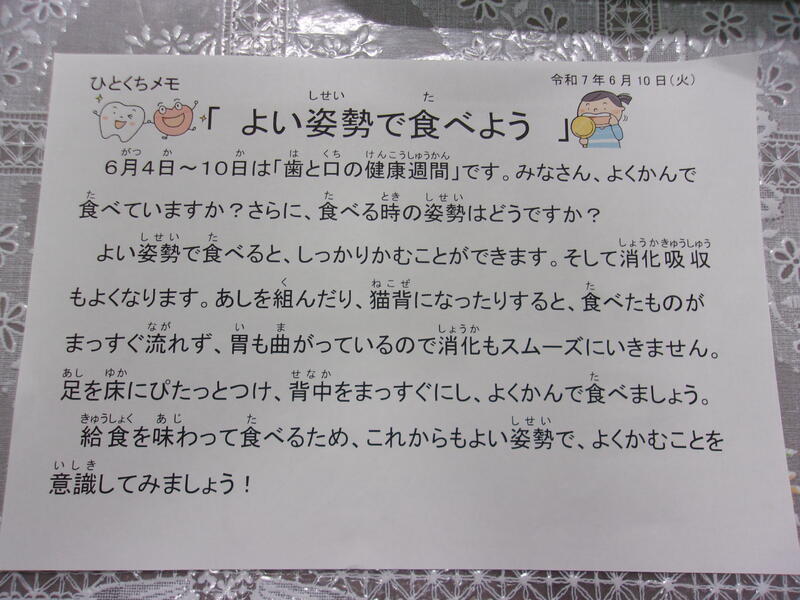 ひとくちメモ
令和7年6月10日(火)
「 よい姿勢で食べよう 」
6月4日~10日は「歯と口の健康週間」です。みなさん、よくかんで
食べていますか?さらに、食べる時の姿勢はどうですか?
よい姿勢で食べると、しっかりかむことができます。そして消化吸収
もよくなります。あしを組んだり、猫背になったりすると、食べたものが
まっすぐ流れず、胃も曲がっているので消化もスムーズにいきません。
足を床にぴたっとつけ、背中をまっすぐにし、よくかんで食べましょう。
給食を味わって食べるため、これからもよい姿勢で、よくかむことを
意識してみましょう!